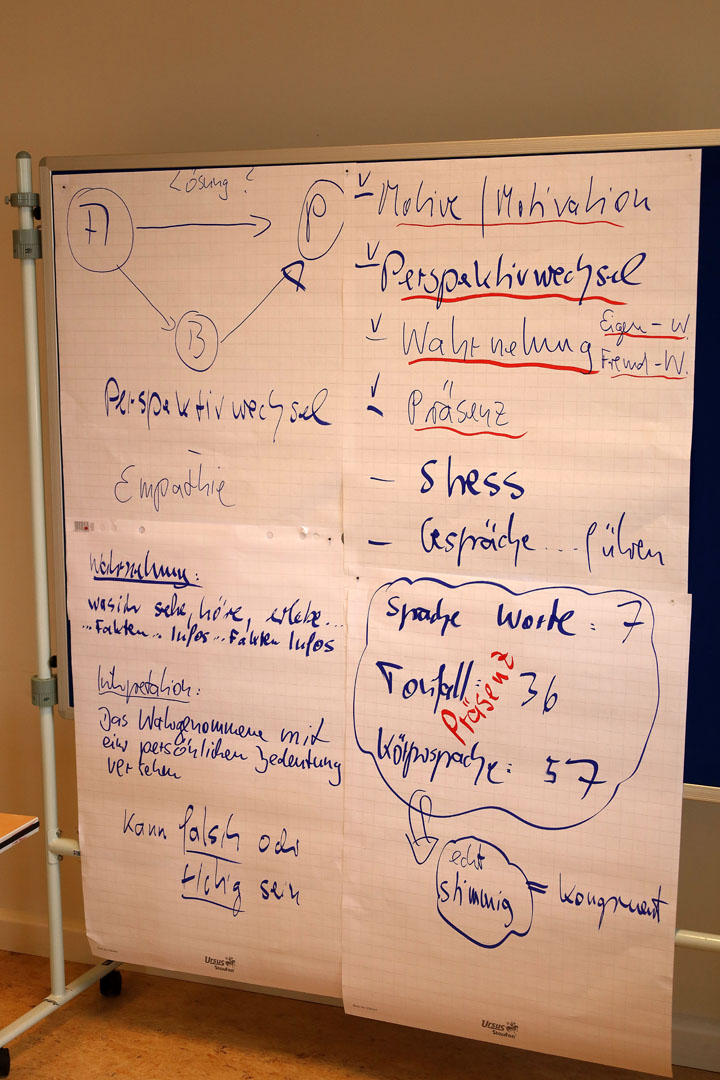 Lösung?
A
P
B
Perspektivwechsel
-
Empathie
- Motive / Motivation
- Perspektivwechsel
- Wahrnehung
Eigen-W.
Fremd-W.
- Präsenz
- Stress
- Gespräche... führen
Wahrnehmung:
was ich sehe, höre, erlebe...
...Fakten... Infos... Fakten Infos
Interpretation:
Das Wahrgenommene mit
einer persönlichen Bedeutung
versehen
Kann falsch oder
richtig sein
Sprache Worte: 7
Tonfall: 36
Präsenz
Körpersprache: 57
echt
stimmig = Kongruent
Ursus
Staufen
Ursus
Staufen